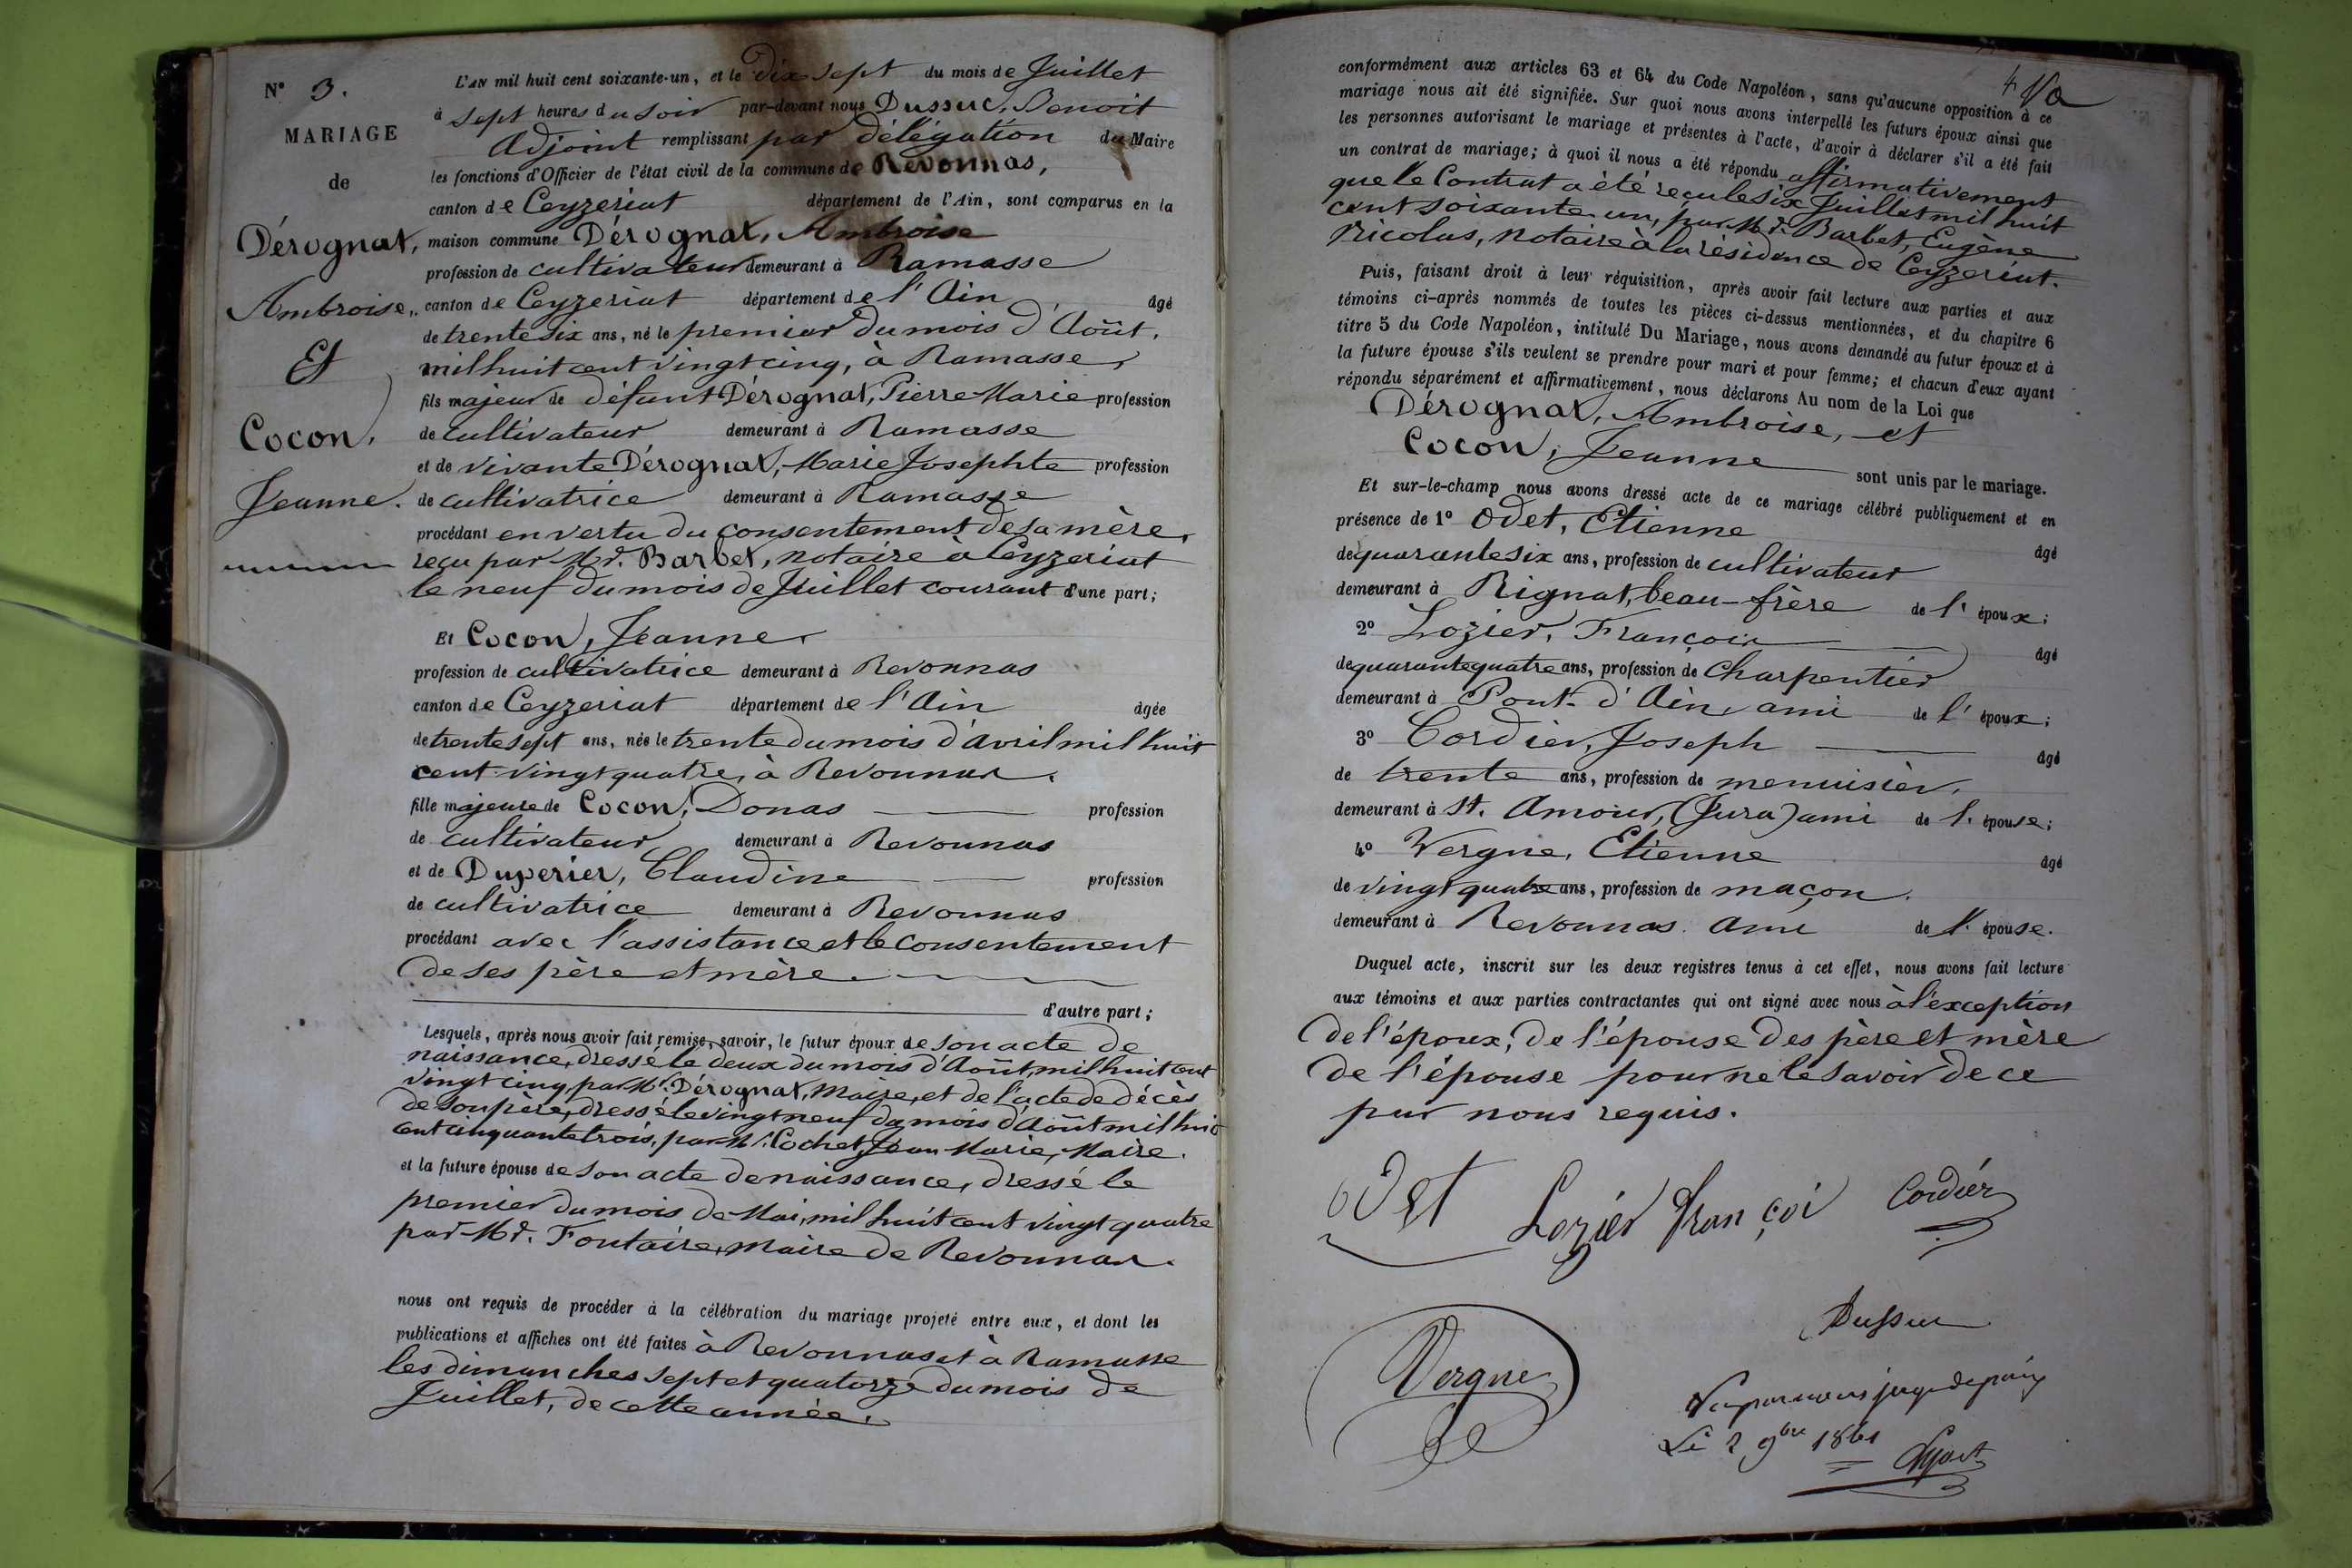 N° 3.
MARIAGE
de
Dérognat,
Ambroise,
Et
Cocon,
Jeanne.
L'AN mil huit cent soixante-un, et le dix sept du mois de Juillet
à sept heures du soir par-devant nous Dussuc, Benoit
Adjoint remplissant par délégation du Maire
les fonctions d'Officier de l'état civil de la commune de Revonnas,
canton de Ceyzeriat département de l'Ain, sont comparus en la
maison commune Dérognat, Ambroise
profession de cultivateur demeurant à Ramasse
canton de Ceyzeriat département de l'Ain âgé
de trente six ans, né le premier du mois d'Août,
mil huit cent vingt cinq, à Ramasse,
fils majeur de défunt Dérognat, Pierre Marie profession
de cultivateur demeurant à Ramasse
et de vivante Dérognat, Marie Josephte profession
de cultivatrice demeurant à Ramasse
procédant en vertu du consentement de sa mère,
reçu par Mr. Barbet, notaire à Ceyzeriat
le neuf du mois de Juillet courant d'une part;
Et Cocon, Jeanne,
profession de cultivatrice demeurant à Revonnas
canton de Ceyzeriat département de l'Ain âgée
de trente sept ans, née le trente du mois d'avril mil huit
cent vingt quatre, à Revonnas.
fille majeure de Cocon, Donas profession
de cultivateur demeurant à Revonnas
et de Duperier, Claudine profession
de cultivatrice demeurant à Revonnas
procédant avec l'assistance et le consentement
de ses père et mère.
d'autre part;
Lesquels, après nous avoir fait remise, savoir, le futur époux de son acte de
naissance, dressé le deux du mois d'Août, mil huit cent
vingt cinq, par Mr. Dérognat, Maire, et de l'acte de décès
de son père, dressé le vingt neuf du mois d'Août mil huit
cent cinquante trois, par Mr. Cochet, Jean Marie, Maire.
et la future épouse de son acte de naissance, dressé le
premier du mois de Mai, mil huit cent vingt quatre
par Mr. Fontaire, maire de Revonnas.
nous ont requis de procéder à la célébration du mariage projeté entre eux, et dont les
publications et affiches ont été faites à Revonnas et à Ramasse
les dimanches sept et quatorze du mois de
Juillet, de cette année.
4
conformément aux articles 63 et 64 du Code Napoléon, sans qu'aucune opposition à ce
mariage nous ait été signifiée. Sur quoi nous avons interpellé les futurs époux ainsi que
les personnes autorisant le mariage et présentes à l'acte, d'avoir à déclarer s'il a été fait
un contrat de mariage; à quoi il nous a été répondu affirmativement
que le Contrat a été reçu le six Juillet mil huit
cent soixante un, par Mr. Barbet, Eugène
Nicolas, notaire à la résidence de Ceyzeriat.
Puis, faisant droit à leur réquisition, après avoir fait lecture aux parties et aux
témoins ci-après nommés de toutes les pièces ci-dessus mentionnées, et du chapitre 6
titre 5 du Code Napoléon, intitulé Du Mariage, nous avons demandé au futur époux et à
la future épouse s'ils veulent se prendre pour mari et pour femme; et chacun d'eux ayant
répondu séparément et affirmativement, nous déclarons Au nom de la Loi que
Dérognat, Ambroise, et
Cocon, Jeanne sont unis par le mariage.
Et sur-le-champ nous avons dressé acte de ce mariage célébré publiquement et en
présence de 1° Odet, Etienne âgé
de quarante six ans, profession de cultivateur
demeurant à Rignat, beau-frère de l'époux;
2° Lozier, François âgé
de quarante quatre ans, profession de Charpentier
demeurant à Pont d'Ain, ami de l'époux;
3° Cordier, Joseph âgé
de trente ans, profession de menuisier,
demeurant à St. Amour, (Jura) ami de l'épouse;
4° Vergne, Etienne âgé
de vingt quatre ans, profession de maçon.
demeurant à Revonnas. ami de l'épouse.
Duquel acte, inscrit sur les deux registres tenus à cet effet, nous avons fait lecture
aux témoins et aux parties contractantes qui ont signé avec nous à l'exception
de l'époux, de l'épouse des père et mère
de l'épouse pour ne le savoir de ce
par nous requis.
Odet Lozier françoi Cordier
Vergne Dussuc
Vu par nous juge de paix
Le 2 9bre 1861